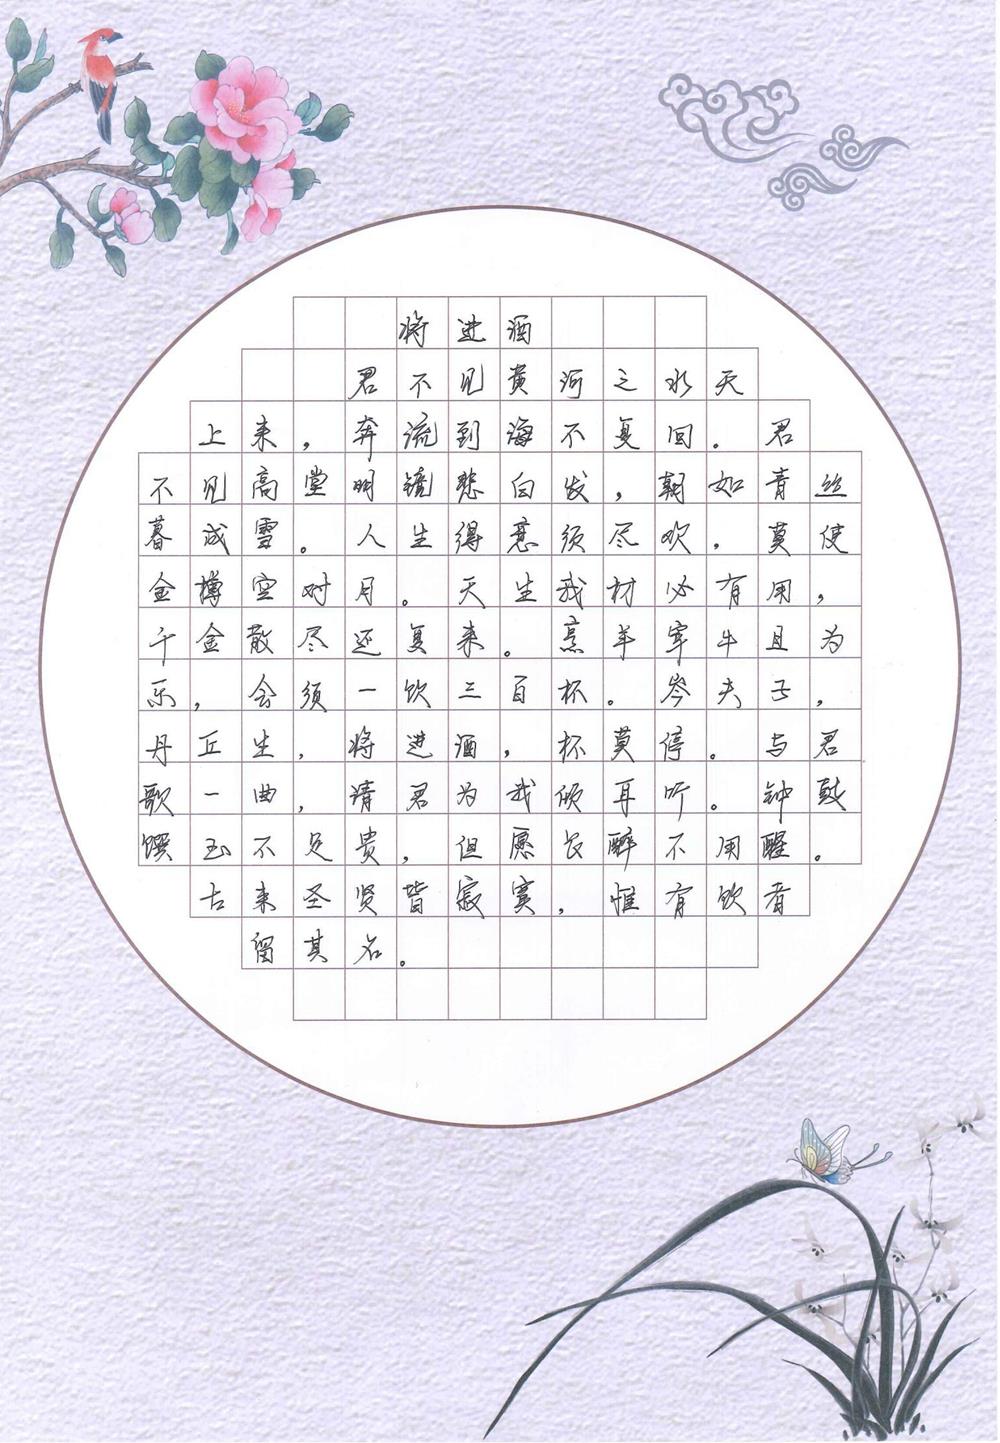 将进酒
君不见黄河之水天
上来，奔流到海不复回。君
不见高堂明镜悲白发，朝如青丝
暮成雪。人生得意须尽欢，莫使
金樽空对月。天生我材必有用，
千金散尽还复来。烹羊宰牛且为
乐，会须一饮三百杯。岑夫子，
丹丘生，将进酒，杯莫停。与君
歌一曲，请君为我倾耳听。钟鼓
馔玉不足贵，但愿长醉不用醒。
古来圣贤皆寂寞，惟有饮者
留其名。